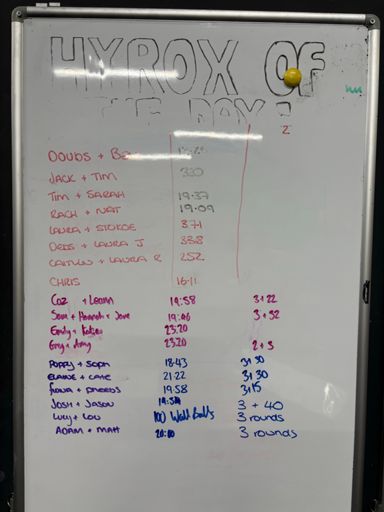 HYROX OF
THE DAY!
2
DOUDS +
JACK + TIM 320
TIM + SARAH 19:37
RACH + NAT 19:09
LAURA + STOKOE 371
DEDS + LAURA J 338
CAITLIN + LAURA R 252
CHRIS 16:11
Caz + Leann 19:58 3+22
Sam + Hannah + Jane 19:06 3+32
Emily + Katie 23:20
Greg + Amy 23:20 2+3
POPPY + SOPH 18:43 3+30
ELAINE + CATE 21:22 3+30
FIONA + 19:58 3+15
JOSH + JASON 3 + 40
LUCY + LOU 100 Wall Balls 3 rounds
ADAM + MATT 20:00 3 rounds